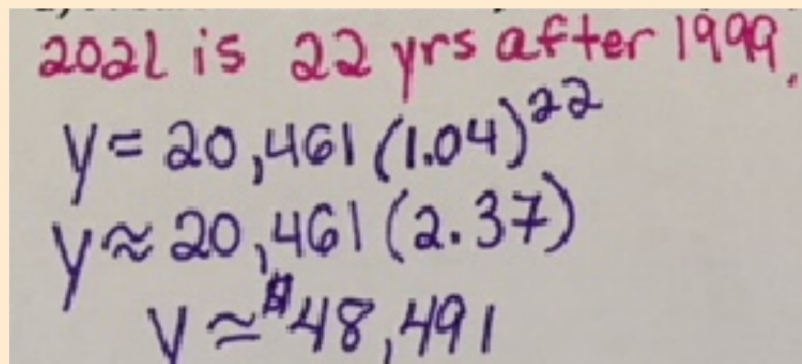 2021 is 22 yrs after 1999.
y = 20,461 (1.04)^22
y ≈ 20,461 (2.37)
y ≃ $48,491